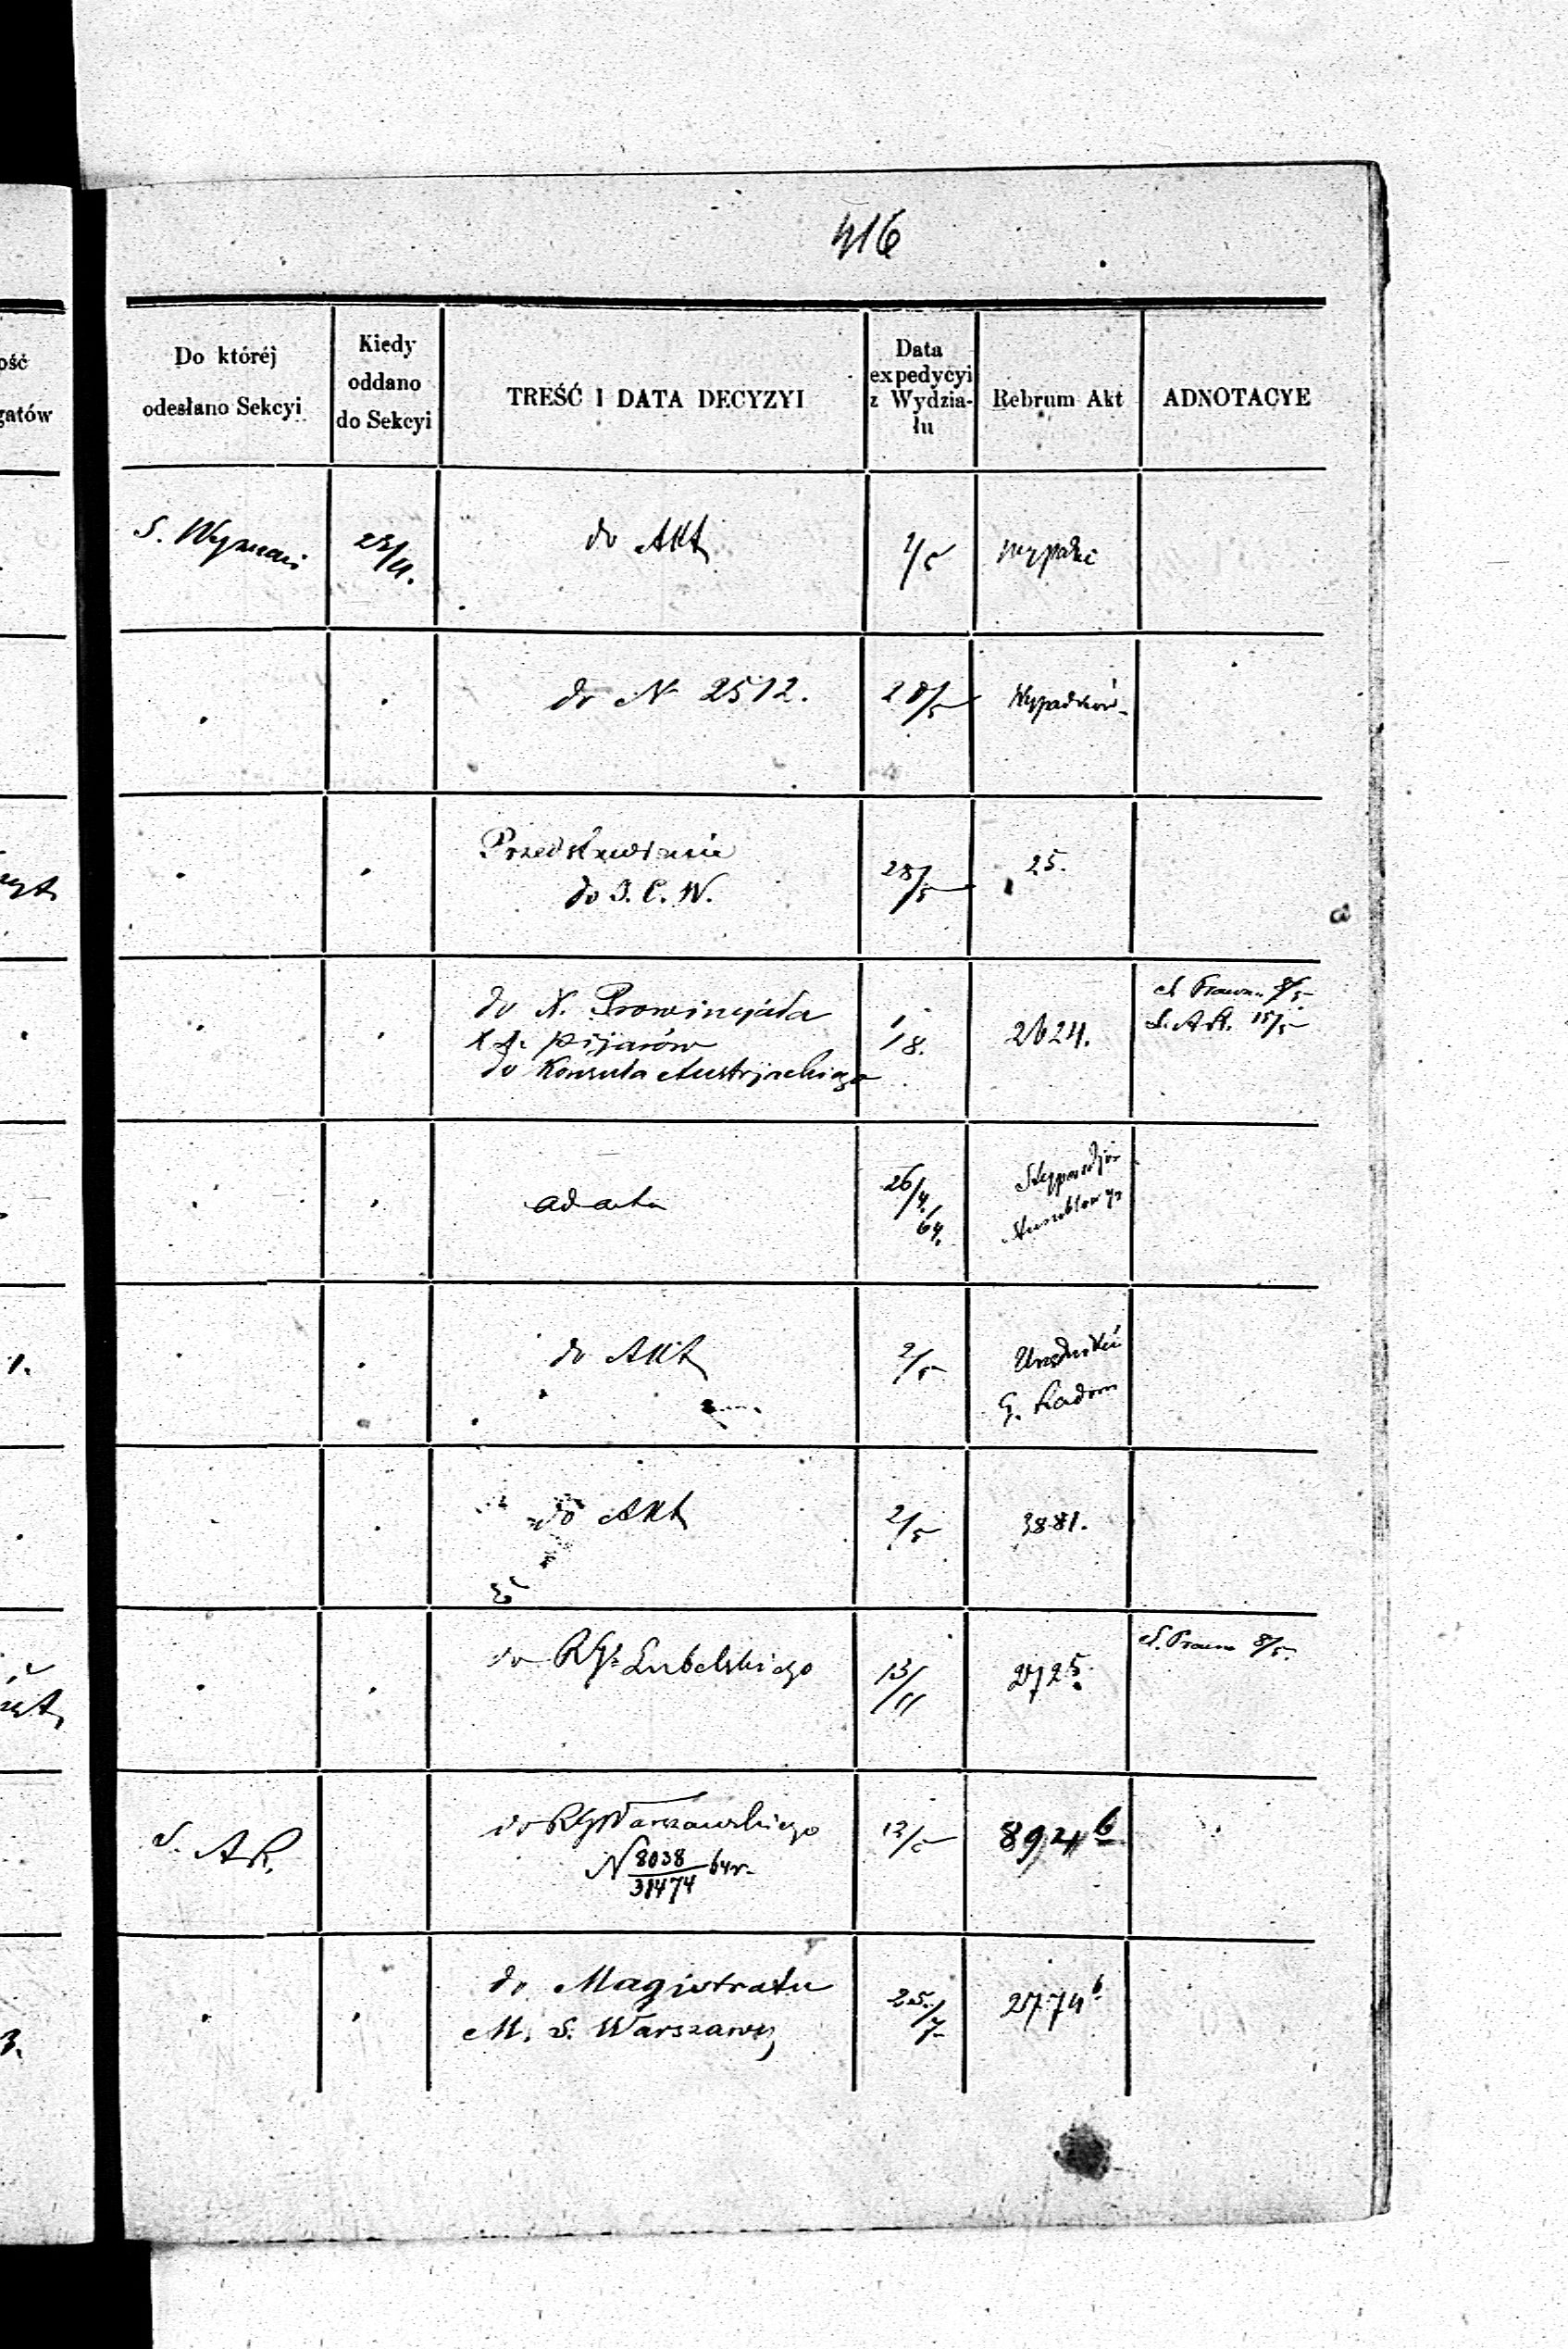 416
ość
gatów
Do któréj
odesłano Sekcyi
Kiedy
oddano
do Sekcyi
TREŚĆ I DATA DECYZYI
Data
expedycyi
z Wydzia-
łu
Rebrum Akt
ADNOTACYE
S. Wyznań
do Akt
1/5
do N 2512.
28/5
Wypadków
Przedstawienie
do J. C. W.
28/5
25.
do X. Prowincyała
X. X. Pijarów
do Konsula Austrjackiego
1/8.
2624.
S. Prawn. 8/5
S. A. K. 15/5
ad acta
26/4/64.
do Akt
2/5
Urzędników
G. Radom
do Akt
2/5
3881.
do RGo Lubelskiego
13/11
2725.
S. Prawn 8/5.
S. AK.
do RG Warszawskiego
N 8038/31474 64r.
13/5
8924 b
do Magistratu
M. S. Warszawy
25/7
2774 b